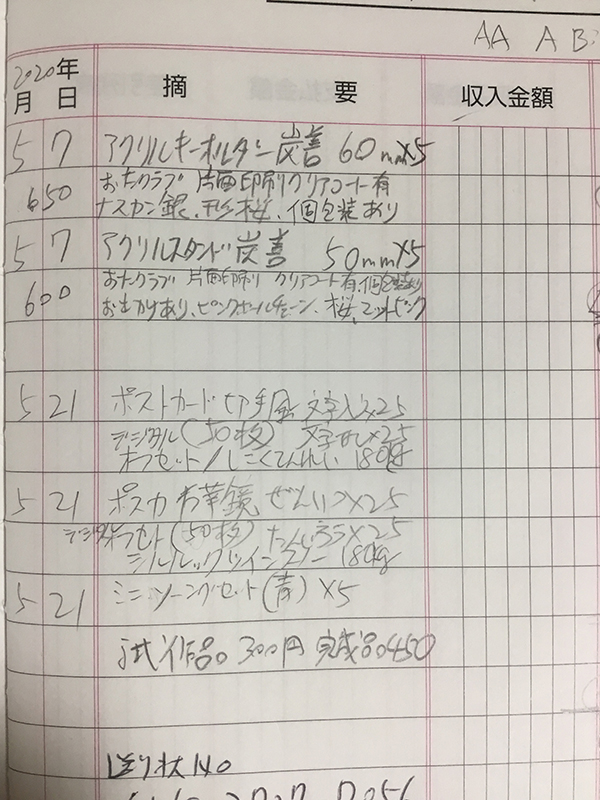 AA A B
2020年
月 日 摘 要 収入金額
5 7 アクリルキーホルダー 炭善 60mm×5
650 おたクラブ 片面印刷クリアコート有
ナスカン銀、形桜、個包装あり
5 7 アクリルスタンド炭善 50mm×5
600 おたクラブ 片面印刷 クリアコート有、個包装あり
おまかけあり、ピンクボールチェーン、桜、マットピンク
5 21 ポストカード 切手風 文字入×25
デジタル(50枚) 文字なし×25
オフセット/しこくてんれい 180kg
5 21 ポスカ 万華鏡 ぜんいつ×25
デジタルオフセット(50枚) たんじろう×25
シルルックツインスノー 180kg
5 21 ミニソーイングセット(青)×5
試作品。300円 完成品。450
送り状140